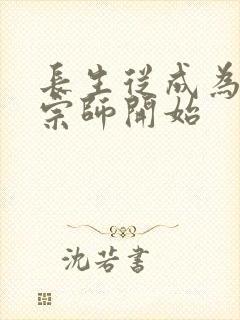 長生從成為
宗師開始
沈若書